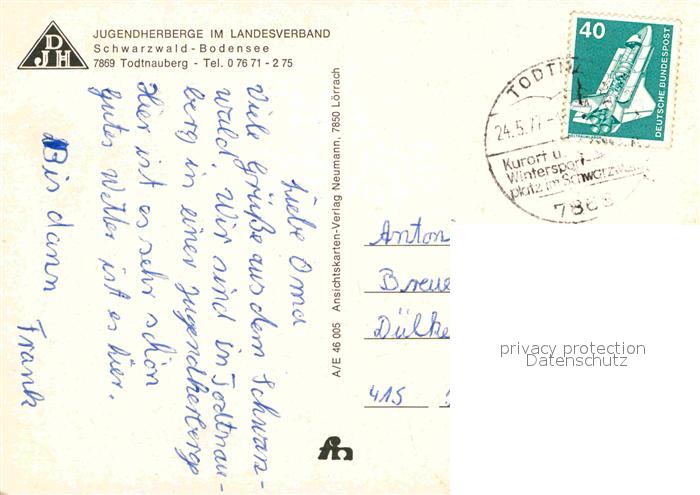 DJH
JUGENDHERBERGE IM LANDESVERBAND
Schwarzwald - Bodensee
7869 Todtnauberg - Tel. 0 76 71 - 2 75
Liebe Oma
Viele Grüße aus dem Schwarz-
wald. Wir sind in Todtnau-
berg in einer Jugendherberge
Hier ist es sehr schön
gutes Wetter ist es hier.
Bis dann
Frank
A/E 46 005 Ansichtskarten-Verlag Neumann, 7850 Lörrach
40
DEUTSCHE BUNDESPOST
TODTN
24.5.77
Kurort u.
Wintersport-
platz im Schwarzwald
786
Antoni
Breue
Dülke
415
privacy protection
Datenschutz